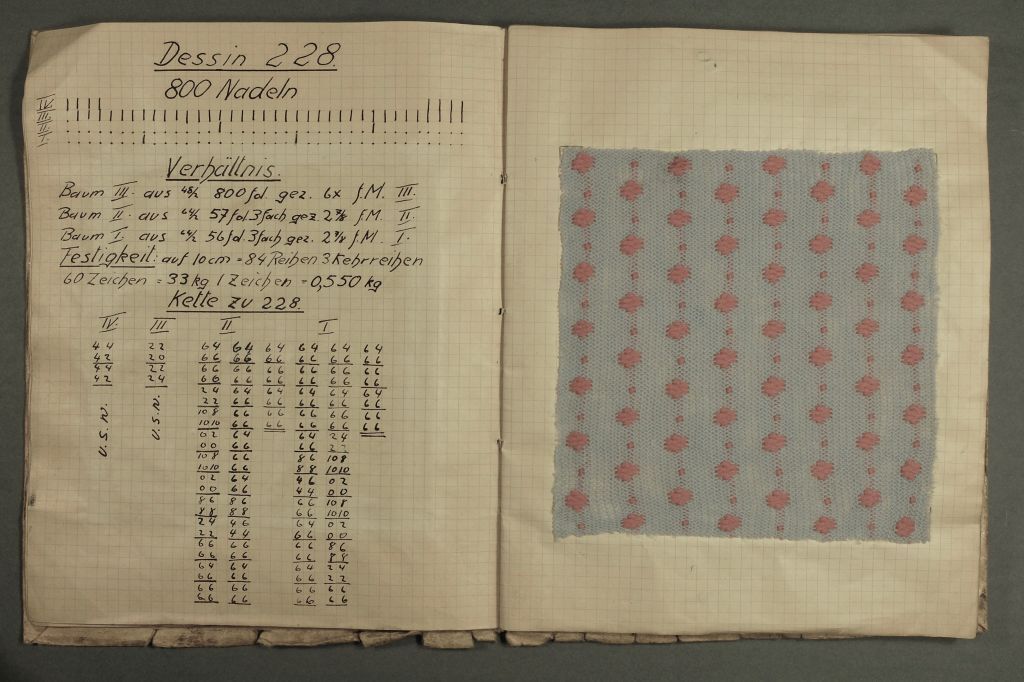 Dessin 228.
800 Nadeln
IV.
III.
II.
I.
Verhältnis.
Baum III. aus 800 fd. gez. 6x f.M. III.
Baum II. aus 57 fd 3fach gez. 2 7/8 f.M. II.
Baum I. aus 56 fd. 3fach gez. 2 7/8 f.M. I.
Festigkeit: auf 10 cm = 84 Reihen 3 Kehrreihen
60 Zeichen = 33 kg 1 Zeichen = 0,550 kg
Kette zu 228.
IV. III II I
44 22 64 64 64 64 64 64
42 20 66 66 66 66 66 66
44 22 66 66 66 66 66 66
42 24 66 66 66 66 66 66
24 64 64 64 64 64
22 66 66 66 66 66
108 66 66 66 66 66
1010 66 66 66 66 66
U.S.W. U.S.W.
02 64 64 24
00 66 66 22
108 66 86 108
1010 66 88 1010
02 64 46 02
00 66 44 00
86 86 66 108
88 88 66 1010
24 46 64 02
22 44 66 00
66 66 66 86
66 66 66 88
64 64 64 24
66 66 66 22
66 66 66 66
66 66 66 66